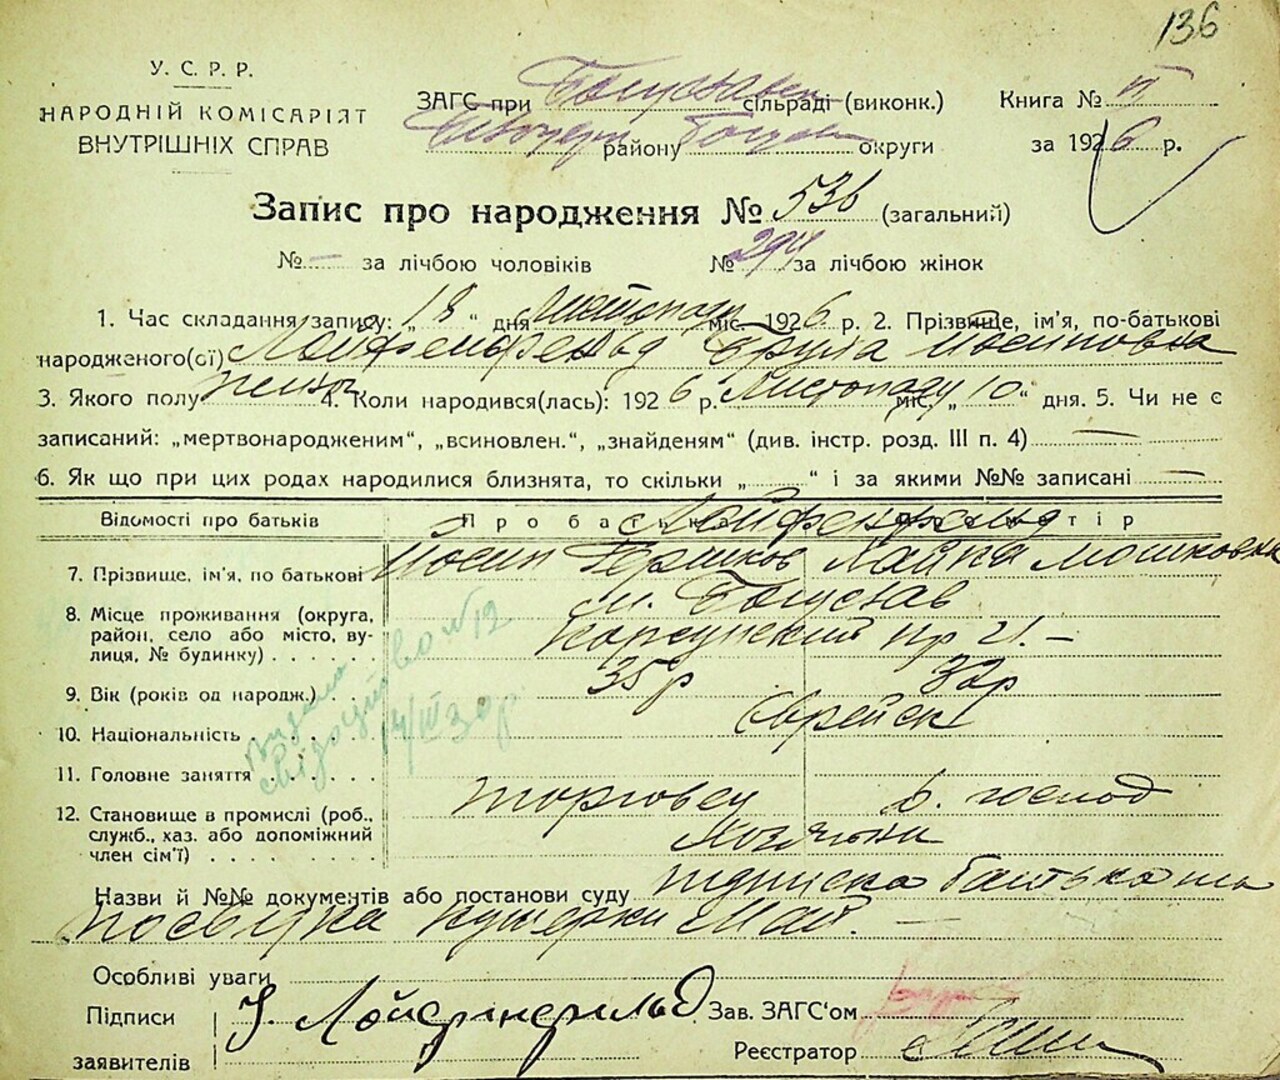 136
У. С. Р. Р.
НАРОДНІЙ КОМІСАРІЯТ
ВНУТРІШНІХ СПРАВ
ЗАГС при Богуславськ сільраді (виконк.)
району округи
Книга № II
за 1926 р.
Запис про народження № 536 (загальний)
№ — за лічбою чоловіків № 294 за лічбою жінок
1. Час складання запису: „18“ дня Листопаду міс. 1926 р. 2. Прізвище, ім'я, по-батькові
народженого(ої) Йосиповна
3. Якого полу жіноч 4. Коли народився(лась): 1926 р. Листопаду міс. „10“ дня. 5. Чи не є
записаний: „мертвонародженим“, „всиновлен.“, „знайденям“ (див. інстр. розд. III п. 4) —
6. Як що при цих родах народилися близнята, то скільки „ “ і за якими №№ записані —
Відомості про батьків
Про батька тір
7. Прізвище, ім'я, по батькові Йосип Гершков Лайка Мошковна
8. Місце проживання (округа, район, село або місто, вулиця, № будинку) м. Богуслав
Корсунский пр 21. –
9. Вік (років од народж.) 35 р 32 р
10. Національність Еврейск
11. Головне заняття
торговец д. господ
12. Становище в промислі (роб., служб., хаз. або допоміжний член сім'ї)
Хозяїни
Видано
свідоцтво № 12
Назви й №№ документів або постанови суду підписка батька та
посвідка кушерки
Особливі уваги
Підписи
заявителів
Зав. ЗАГС'ом
Реєстратор